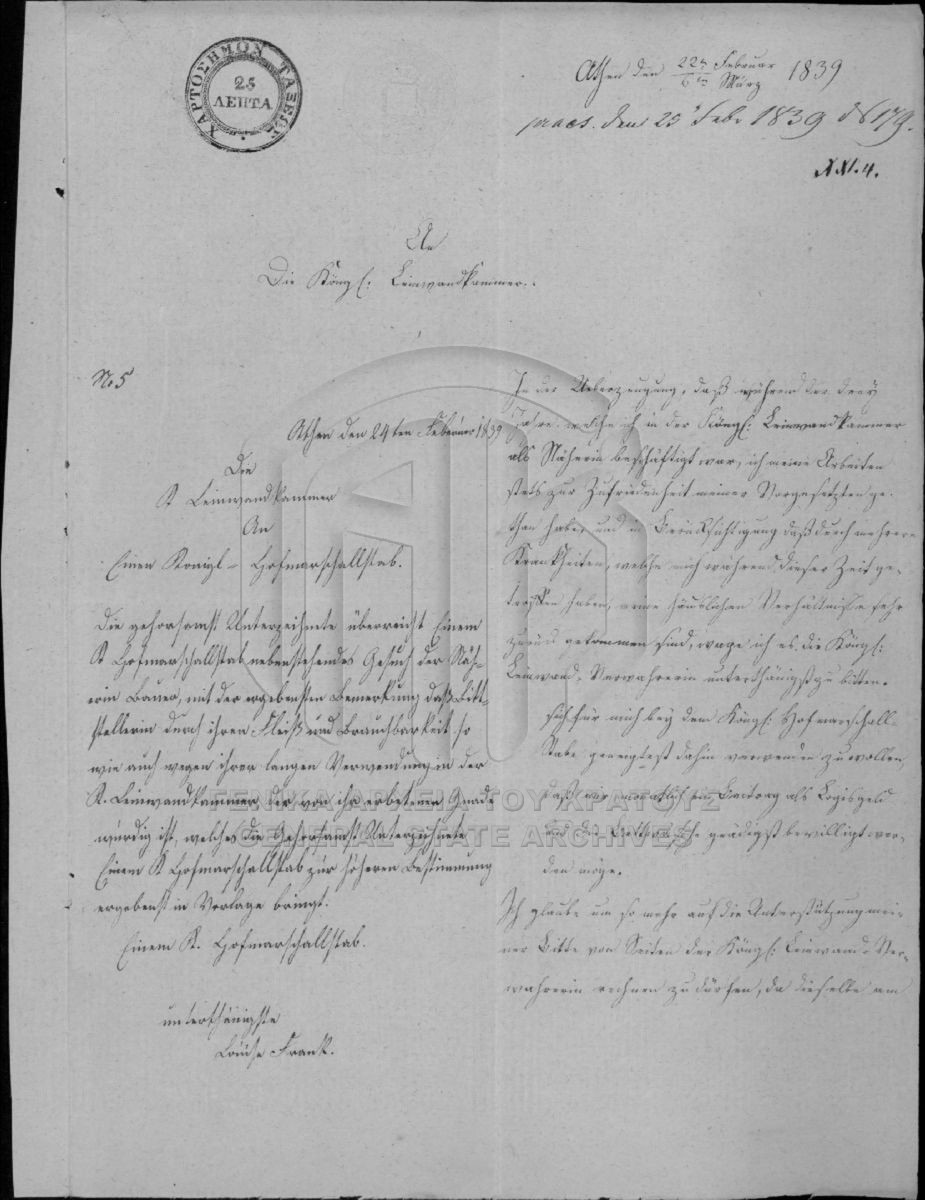 ΧΑΡΤΟΣΗΜΟΝ ΤΑΞΕΩΣ
25
ΛΕΠΤΑ
Athen den 22ten Februar 1839
6ten März
praes. den 25 Febr 1839 N 179.
XXI. 4.
An
Die Königl: Leinwandkammer.
No 5
Athen den 24ten Februar 1839
Die
K Leinwandkammer
An
Einen Königl= Hofmarschallstab.
Die gehorsamst Unterzeichnete überreicht Einem
K Hofmarschallstab nebenstehendes Gesuch der Näh-
erin Bauer, mit der ergebensten Bemerkung daß Bitt-
stellerin durch ihren Fleiß und Brauchbarkeit so
wie auch wegen ihrer langen Verwendung in der
K. Leinwandkammer der von ihr erbetenen Gnade
würdig ist, welches die Gehorsamst Unterzeichnete
Einem K Hofmarschallstab zur höheren Bestimmung
ergebenst in Vorlage bringt.
Einem K. Hofmarschallstab.
unterthänigste
Louise Frank.
In der Ueberzeugung, daß während der drey
Jahre welche ich in der Königl: Leinwandkammer
als Näherin beschäftigt war, ich meine Arbeiten
stets zur Zufriedenheit meiner Vorgesetzten ge-
than habe, und in Berücksichtigung daß durch mehrere
Krankheiten, welche mich während dieser Zeit ge-
troffen haben, meine häuslichen Verhältnisse sehr
zurück gekommen sind, wage ich es die Königl:
Leinwand-Verwahrerin unterthänigst zu bitten.
sich für mich bey dem Königl: Hofmarschall-
Stabe geneigtest dahin verwenden zu wollen,
daß mir monatlich ein Beitrag als Logisgeld
und die Bettwäsche gnädigst bewilligt wer-
den möge.
Ich glaube um so mehr auf die Unterstützung mei-
ner Bitte von Seiten der Königl: Leinwand-Ver-
wahrerin rechnen zu dürfen, da dieselbe am
ΓΕΝΙΚΑ ΑΡΧΕΙΑ ΤΟΥ ΚΡΑΤΟΥΣ
GENERAL STATE ARCHIVES